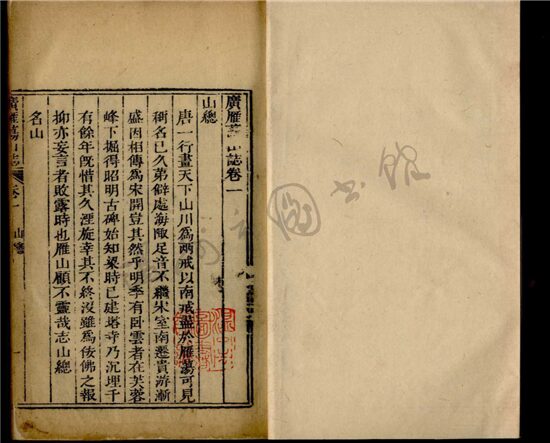 廣雁蕩山誌卷一
山總
唐一行畫天下山川為兩戒以南戒盡於雁蕩可見
稱名已久第僻處海陬足音不繼宋室南遷貴游漸
盛因相傳為宋開豈其然乎明季有臥雲者在芙蓉
峰下掘得昭明古碑始知梁時已建塔寺乃沉埋千
有餘年旣惜其久湮旋幸其不終沒雖為佞佛之報
抑亦妄言者敗露時也雁山顧不靈哉志山總
名山
廣雁蕩山誌
卷一
山總